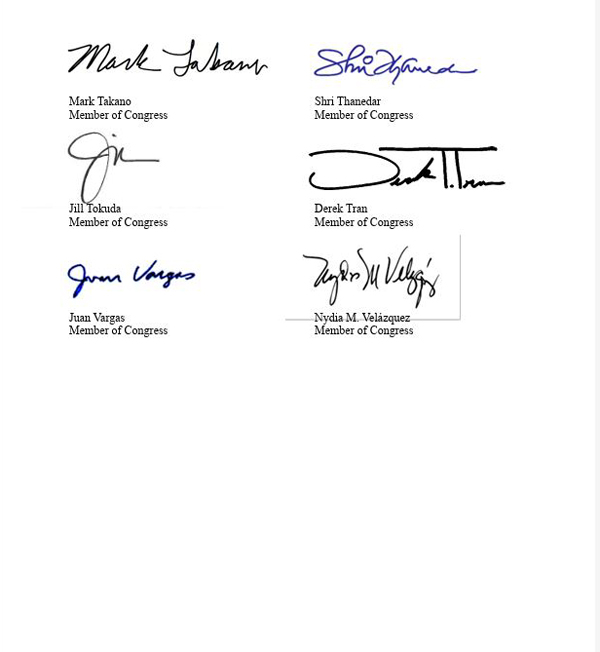 Mark Takano Shri Thanedar
Mark Takano Shri Thanedar
Member of Congress Member of Congress
Jill Derek T. Tran
Jill Tokuda Derek Tran
Member of Congress Member of Congress
Juan Vargas Nydia M Velázquez
Juan Vargas Nydia M. Velázquez
Member of Congress Member of Congress